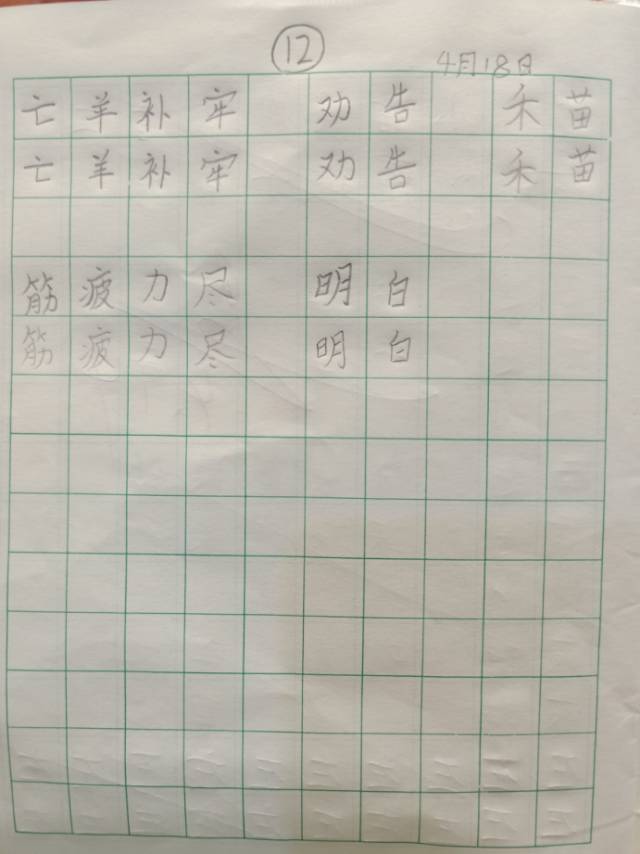 ⑫
4月18日
亡羊补牢 劝告 禾苗
亡羊补牢 劝告 禾苗
筋疲力尽 明白
筋疲力尽 明白